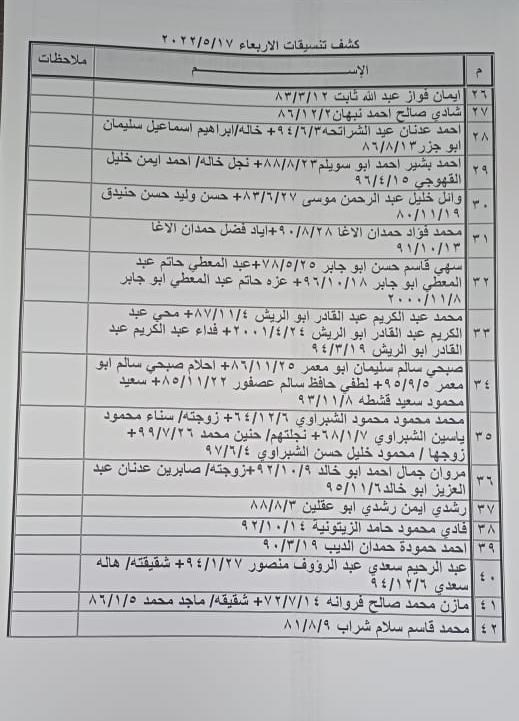 كشف تنسيقات الاربعاء ٢٠٢٢/٥/١٧
م الإســـــــــم ملاحظات
٢٦ ايمان فواز عبد الله ثابت ٨٣/٣/١٢
٢٧ شادي صالح احمد نبهان ٨٦/١٢/٢
٢٨ احمد عدنان عيد الشراتحه ٩٤/٦/٣+ خاله/ابراهيم اسماعيل سليمان
ابو جزر ٨٦/٨/١٣
٢٩ احمد بشير احمد ابو سويلم ٨٨/٨/٢٣+ نجل خاله/ احمد ايمن خليل
القهوجي ٩٦/٤/١٥
٣٠ وائل خليل عبد الرحمن موسى ٨٣/٦/٢٧+ حسن وليد حسن حنيدق
٨٠/١١/١٩
٣١ محمد فؤاد حمدان الاغا ٩٠/٨/٢٨+اياد فضل حمدان الاغا
٩١/١٠/١٣
٣٢ سهى قاسم حسن ابو جابر ٧٨/٥/٢٥+عبد المعطي حاتم عبد
المعطي ابو جابر ٩٦/١٠/١٨+ عزه حاتم عبد المعطي ابو جابر
٢٠٠٠/١١/٨
٣٣ محمد عبد الكريم عبد القادر ابو الريش ٨٧/١١/٤+ محي عبد
الكريم عبد القادر ابو الريش ٢٠٠١/٤/٢٤+ فداء عبد الكريم عبد
القادر ابو الريش ٩٤/٣/١٩
٣٤ صبحي سالم سليمان ابو معمر ٨٦/١١/٢٥+ احلام صبحي سالم ابو
معمر ٩٥/٩/٥+ لطفي حافظ سالم عصفور ٨٥/١١/٢٢+ سعيد
محمود سعيد قشطه ٩٣/١١/٨
٣٥ محمد محمود محمود الشبراوي ٦٤/١٢/٦+ زوجته/ سناء محمود
ياسين الشبراوي ٦٨/١/٧+ نجلتهم/ حنين محمد ٩٩/٧/٢٦+
زوجها / محمود خليل حسن الشبراوي ٩٧/٦/٤
٣٦ مروان جمال احمد ابو خالد ٩٢/١٠/٩+زوجته/ صابرين عدنان عبد
العزيز ابو خالد ٩٥/١١/٦
٣٧ رشدي ايمن رشدي ابو عقلين ٨٨/٨/٣
٣٨ فادي محمود حامد الزيتونية ٩٢/١٠/١٤
٣٩ احمد حمودة حمدان الديب ٩٠/٣/١٩
٤٠ عبد الرحيم سعدي عبد الرؤوف منصور ٩٤/١/٢٧+ شقيقته/ هاله
سعدي ٩٤/١٢/٦
٤١ مازن محمد صالح فروانه ٧٢/٧/١٤+ شقيقه/ ماجد محمد ٨٦/١/٥
٤٢ محمد قاسم سلام شراب ٨١/٨/٩